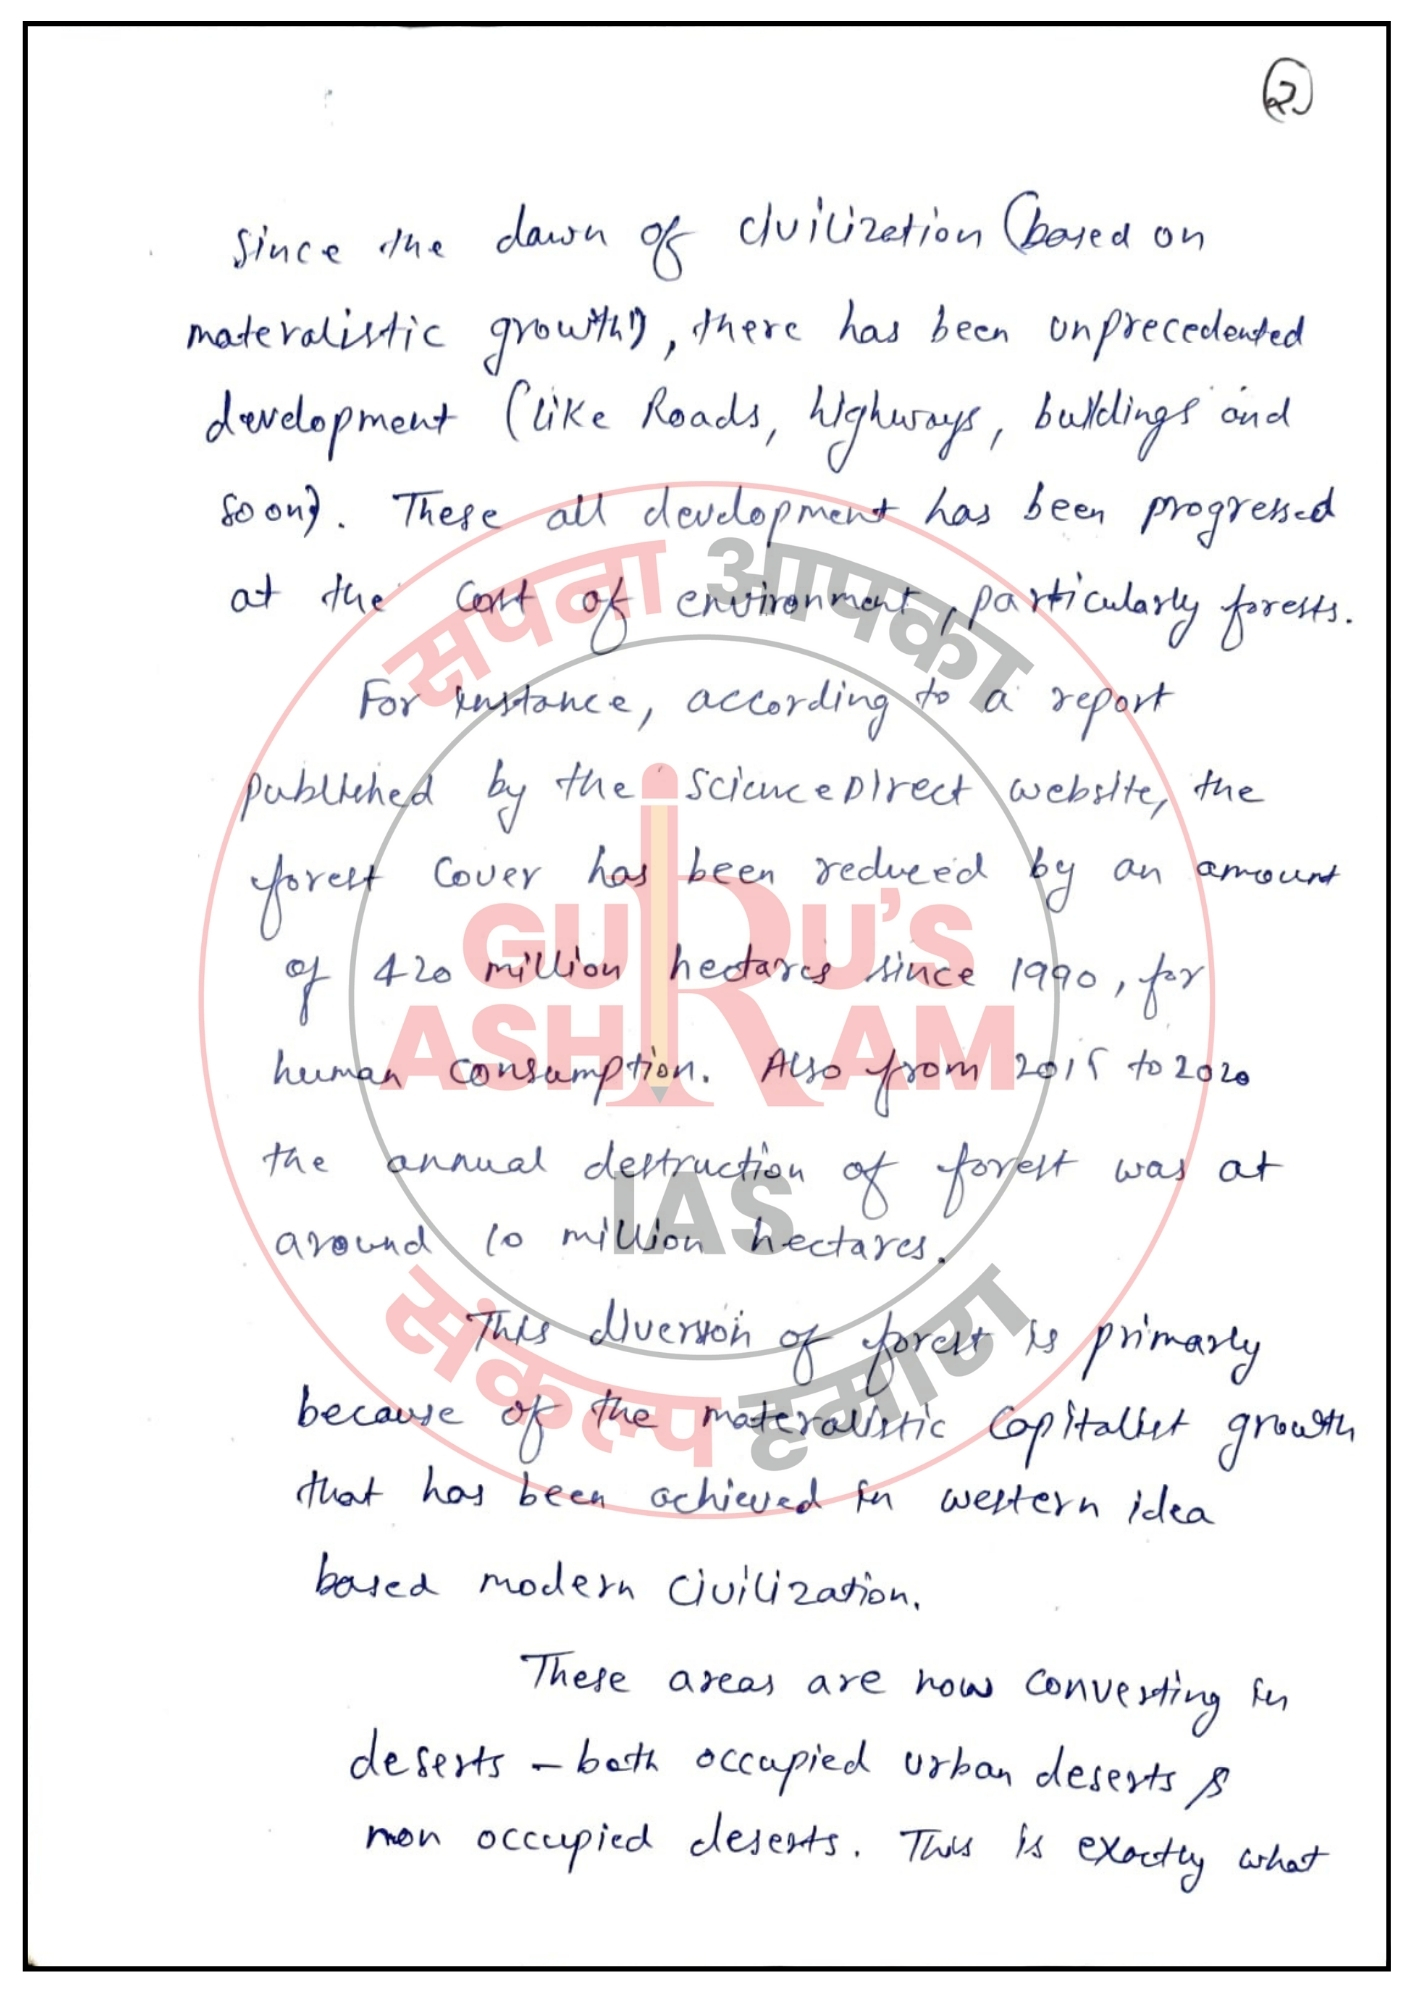 2
Since the dawn of civilization (based on
materalistic growth), there has been unprecedented
development (like Roads, highways, buildings and
soon). These all development has been progressed
at the cost of environment, particularly forests.
For instance, according to a report
published by the ScienceDirect website, the
forest cover has been reduced by an amount
of 420 million hectares since 1990, for
human consumption. Also from 2015 to 2020
the annual destruction of forest was at
around 10 million hectares.
This diversion of forest is primarly
because of the materalistic capitalist growth
that has been achieved in western idea
based modern civilization.
These areas are now converting in
deserts – both occupied urban deserts &
non occupied deserts. This is exactly what
सपना आपका
GURU'S
ASHRAM
IAS
संकल्प हमारा